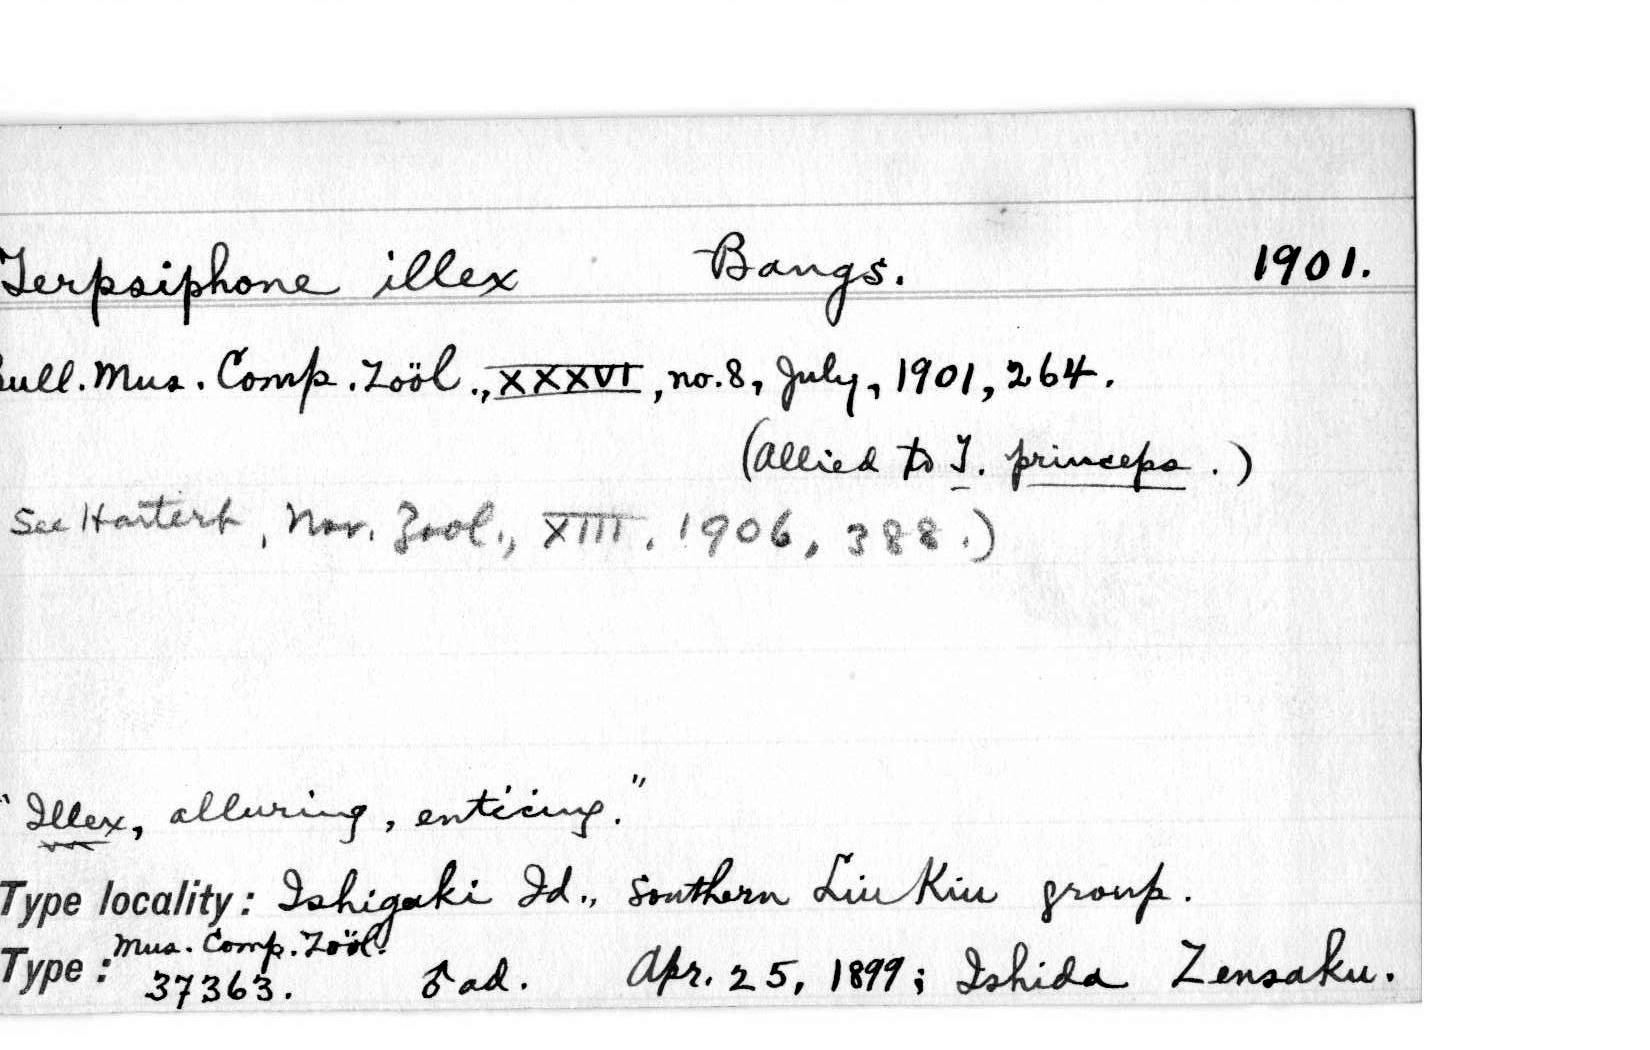 Terpsiphone illex Bangs. 1901.
Bull. Mus. Comp. Zoöl., XXXVI, no. 8, July, 1901, 264.
(Allied to T. princeps.)
See Hartert, Nov. Zool., XIII, 1906, 388.)
"Illex, alluring, enticing."
Type locality: Ishigaki Id., Southern Liu Kiu group.
Mus. Comp. Zoöl.
Type: 37363. ♂ ad. Apr. 25, 1899; Ishida Zensaku.